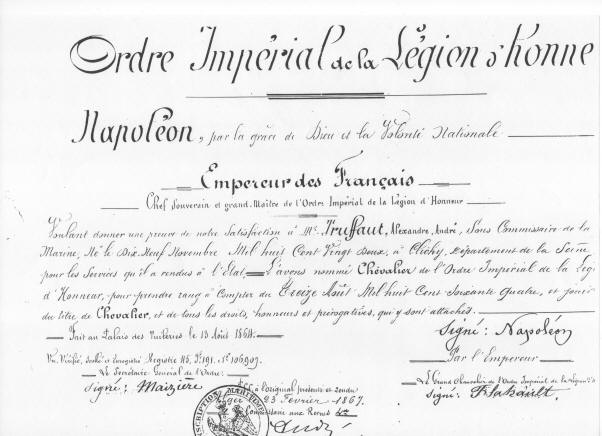 Ordre Impérial de la Légion d'Honne
Napoléon, par la grâce de Dieu et la Volonté Nationale
Empereur des Français
Chef Souverain et grand-Maître de l'Ordre Impérial de la Légion d'Honneur
Voulant donner une preuve de notre Satisfaction à Mr. Truffaut, Alexandre, André, Sous Commissaire de la
Marine, Né le Dix Neuf Novembre Mil huit Cent Vingt Deux, à Clichy, Département de la Seine
pour les Services qu'il a rendus à l'Etat, L'avons nommé Chevalier de l'Ordre Impérial de la Lég
d'Honneur, pour prendre rang à Compter du Treize Août Mil huit Cent Soixante Quatre, et jouir
du titre de Chevalier, et de tous les droits, honneurs et prérogatives, qui y sont attachés.
Fait au Palais des Tuileries le 13 Août 1864.
Signé: Napoléon
Vu, Vérifié, Scellé et Enregistré Registre 115, Fo. 191. No. 106,909.
Par l'Empereur
Le Secrétaire Général de l'Ordre:
Signé: Maizière
Le Grand Chancelier de l'Ordre Impérial de la Légion d'h
Signé: Flahault.
à l'Original présenté et rendu
23 Février 1867.
Commissaire aux Revues
INSCRIPTION MARITIME